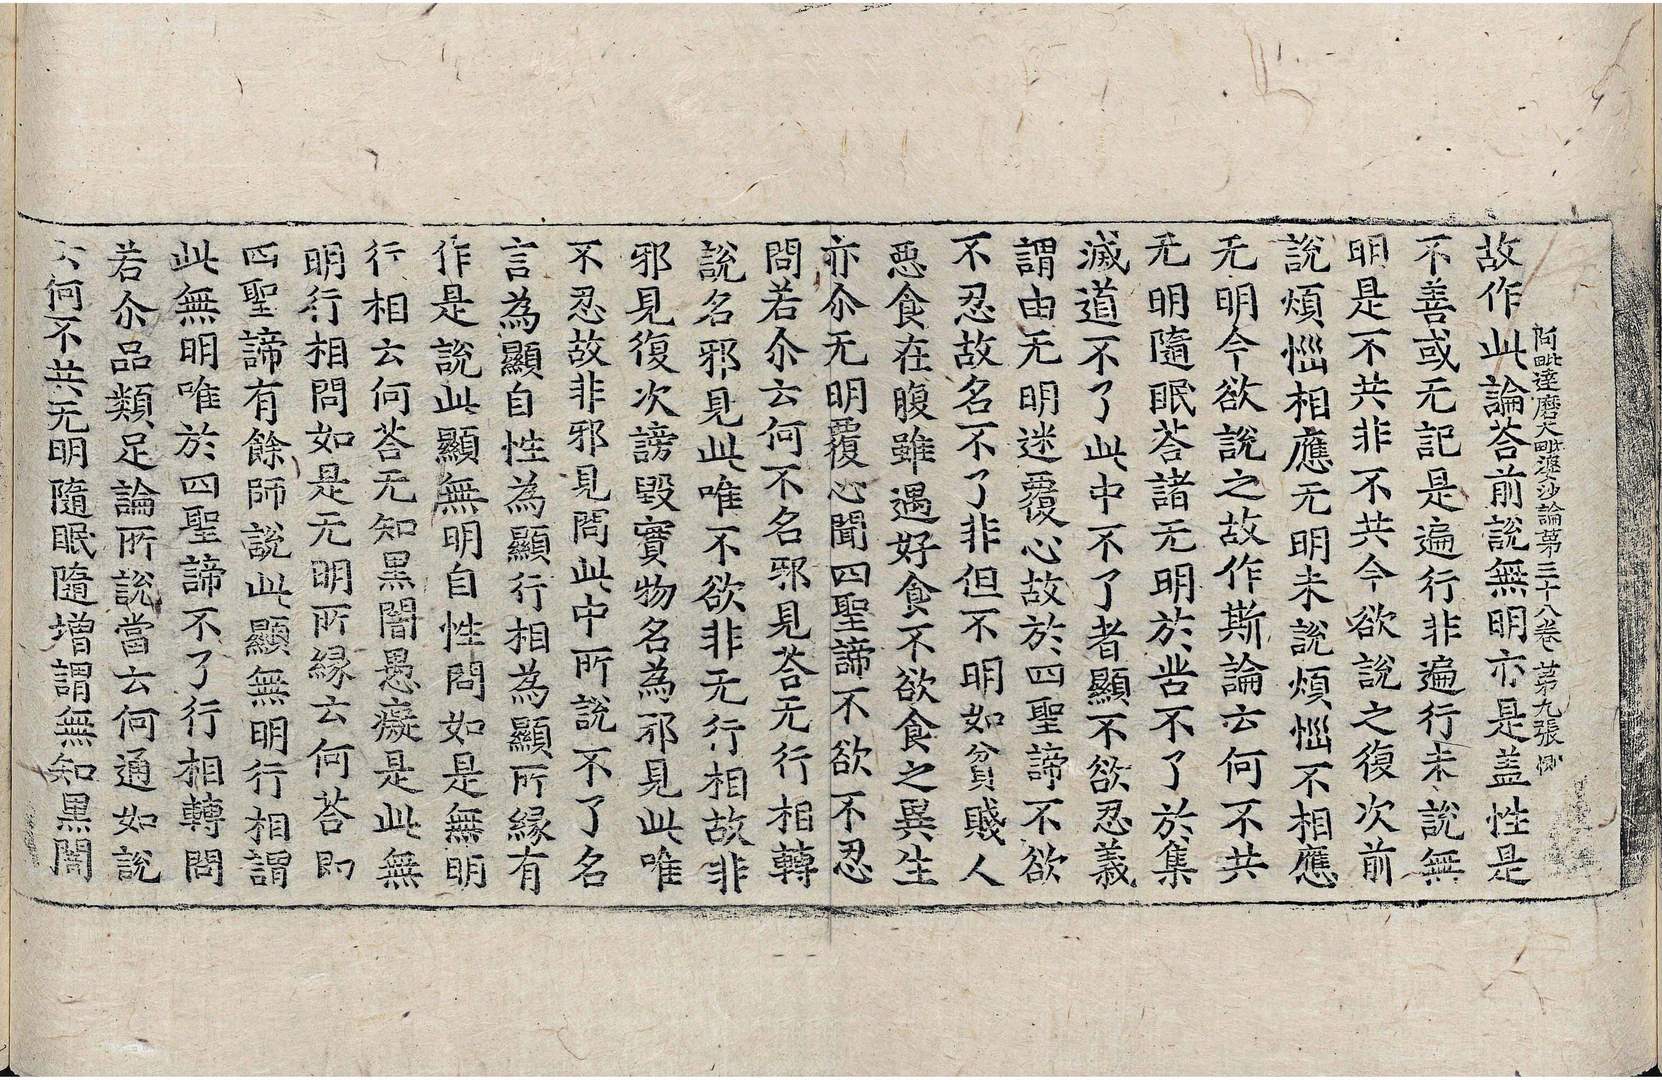 阿毗達磨大毗婆沙論第三十八卷 第九張 惻
故作此論荅前說無明亦是盖性是
不善或无記是遍行非遍行未說無
明是不共非不共今欲說之復次前
說煩惱相應无明未說煩惱不相應
无明今欲說之故作斯論云何不共
无明隨眠荅諸无明於苦不了於集
滅道不了此中不了者顯不欲忍義
謂由无明迷覆心故於四聖諦不欲
不忍故名不了非但不明如貧賤人
惡食在腹雖遇好食不欲食之異生
亦尒无明覆心聞四聖諦不欲不忍
問若尒云何不名邪見荅无行相轉
說名邪見此唯不欲非无行相故非
邪見復次謗毀實物名為邪見此唯
不忍故非邪見問此中所說不了名
言為顯自性為顯行相為顯所緣有
作是說此顯無明自性問如是無明
行相云何荅无知黑闇愚癡是此無
明行相問如是无明所緣云何荅即
四聖諦有餘師說此顯無明行相謂
此無明唯於四聖諦不了行相轉問
若尒品類足論所說當云何通如說
云何不共无明隨眠隨增謂無知黑闇